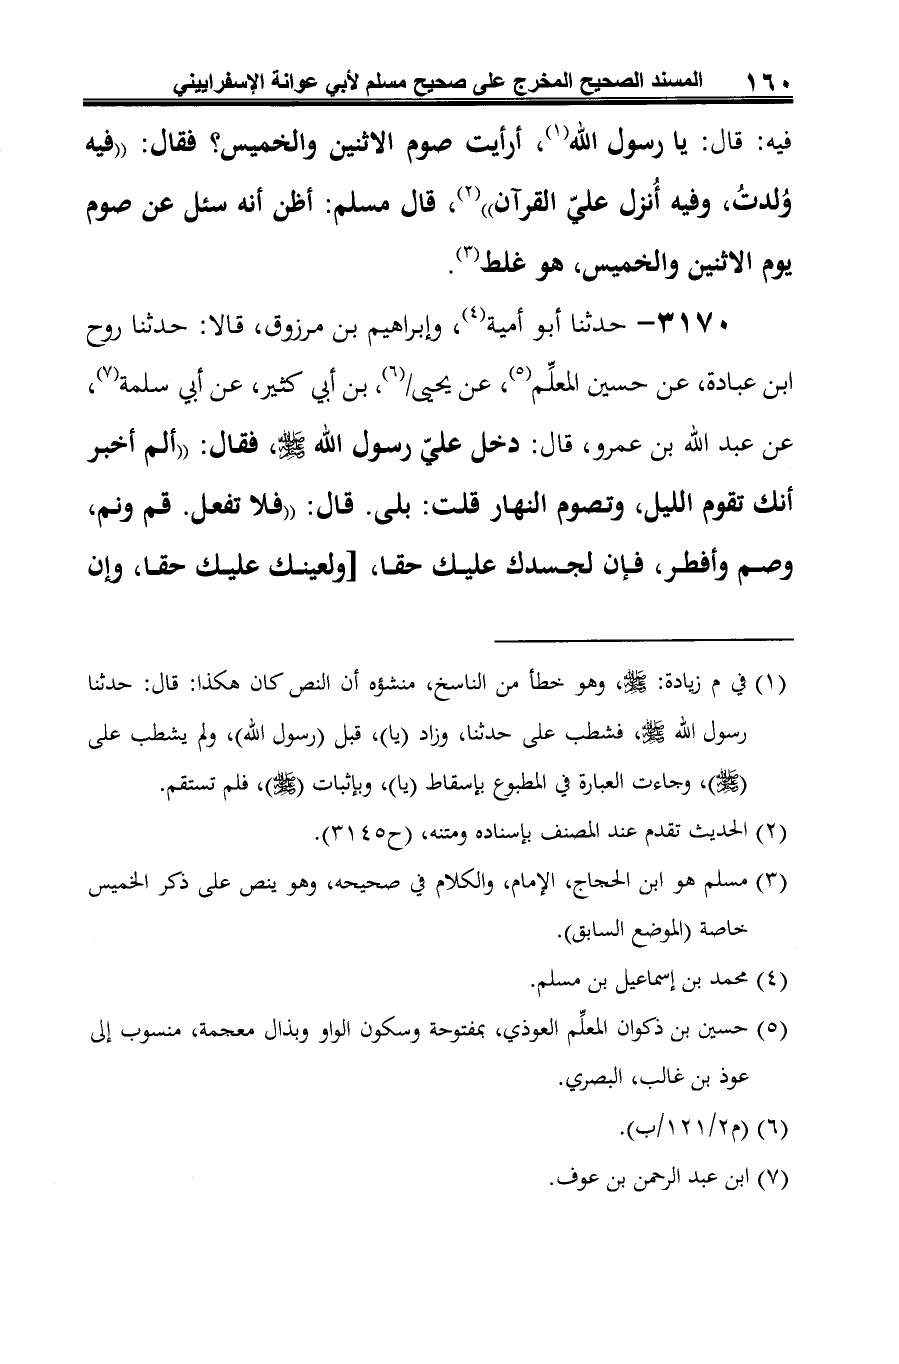 ١٦٠ المسند الصحيح المخرج على صحيح مسلم لأبي عوانة الإسفراييني
فيه: قال: يا رسول الله(١)، أرأيت صوم الاثنين والخميس؟ فقال: ((فيه
وُلدتُ، وفيه أُنزل عليّ القرآن))(٢)، قال مسلم: أظن أنه سئل عن صوم
يوم الاثنين والخميس، هو غلط(٣).
٣١٧٠- حدثنا أبو أمية(٤)، وإبراهيم بن مرزوق، قالا: حدثنا روح
ابن عبادة، عن حسين المعلِّم(٥)، عن يحيى/(٦)، بن أبي كثير، عن أبي سلمة(٧)،
عن عبد الله بن عمرو، قال: دخل عليّ رسول الله ﷺ، فقال: ((ألم أخبر
أنك تقوم الليل، وتصوم النهار قلت: بلى. قال: ((فلا تفعل. قم ونم،
وصم وأفطر، فإن لجسدك عليك حقا، [ولعينك عليك حقا، وإن
(١) في م زيادة: ﷺ، وهو خطأ من الناسخ، منشؤه أن النص كان هكذا: قال: حدثنا
رسول الله ﷺ، فشطب على حدثنا، وزاد (يا)، قبل (رسول الله)، ولم يشطب على
(ﷺ)، وجاءت العبارة في المطبوع بإسقاط (يا)، وبإثبات (ﷺ)، فلم تستقم.
(٢) الحديث تقدم عند المصنف بإسناده ومتنه، (ح٣١٤٥).
(٣) مسلم هو ابن الحجاج، الإمام، والكلام في صحيحه، وهو ينص على ذكر الخميس
خاصة (الموضع السابق).
(٤) محمد بن إسماعيل بن مسلم.
(٥) حسين بن ذكوان المعلِّم العوذي، بمفتوحة وسكون الواو وبذال معجمة، منسوب إلى
عوذ بن غالب، البصري.
(٦) (م١٢١/٢/ب).
(٧) ابن عبد الرحمن بن عوف.